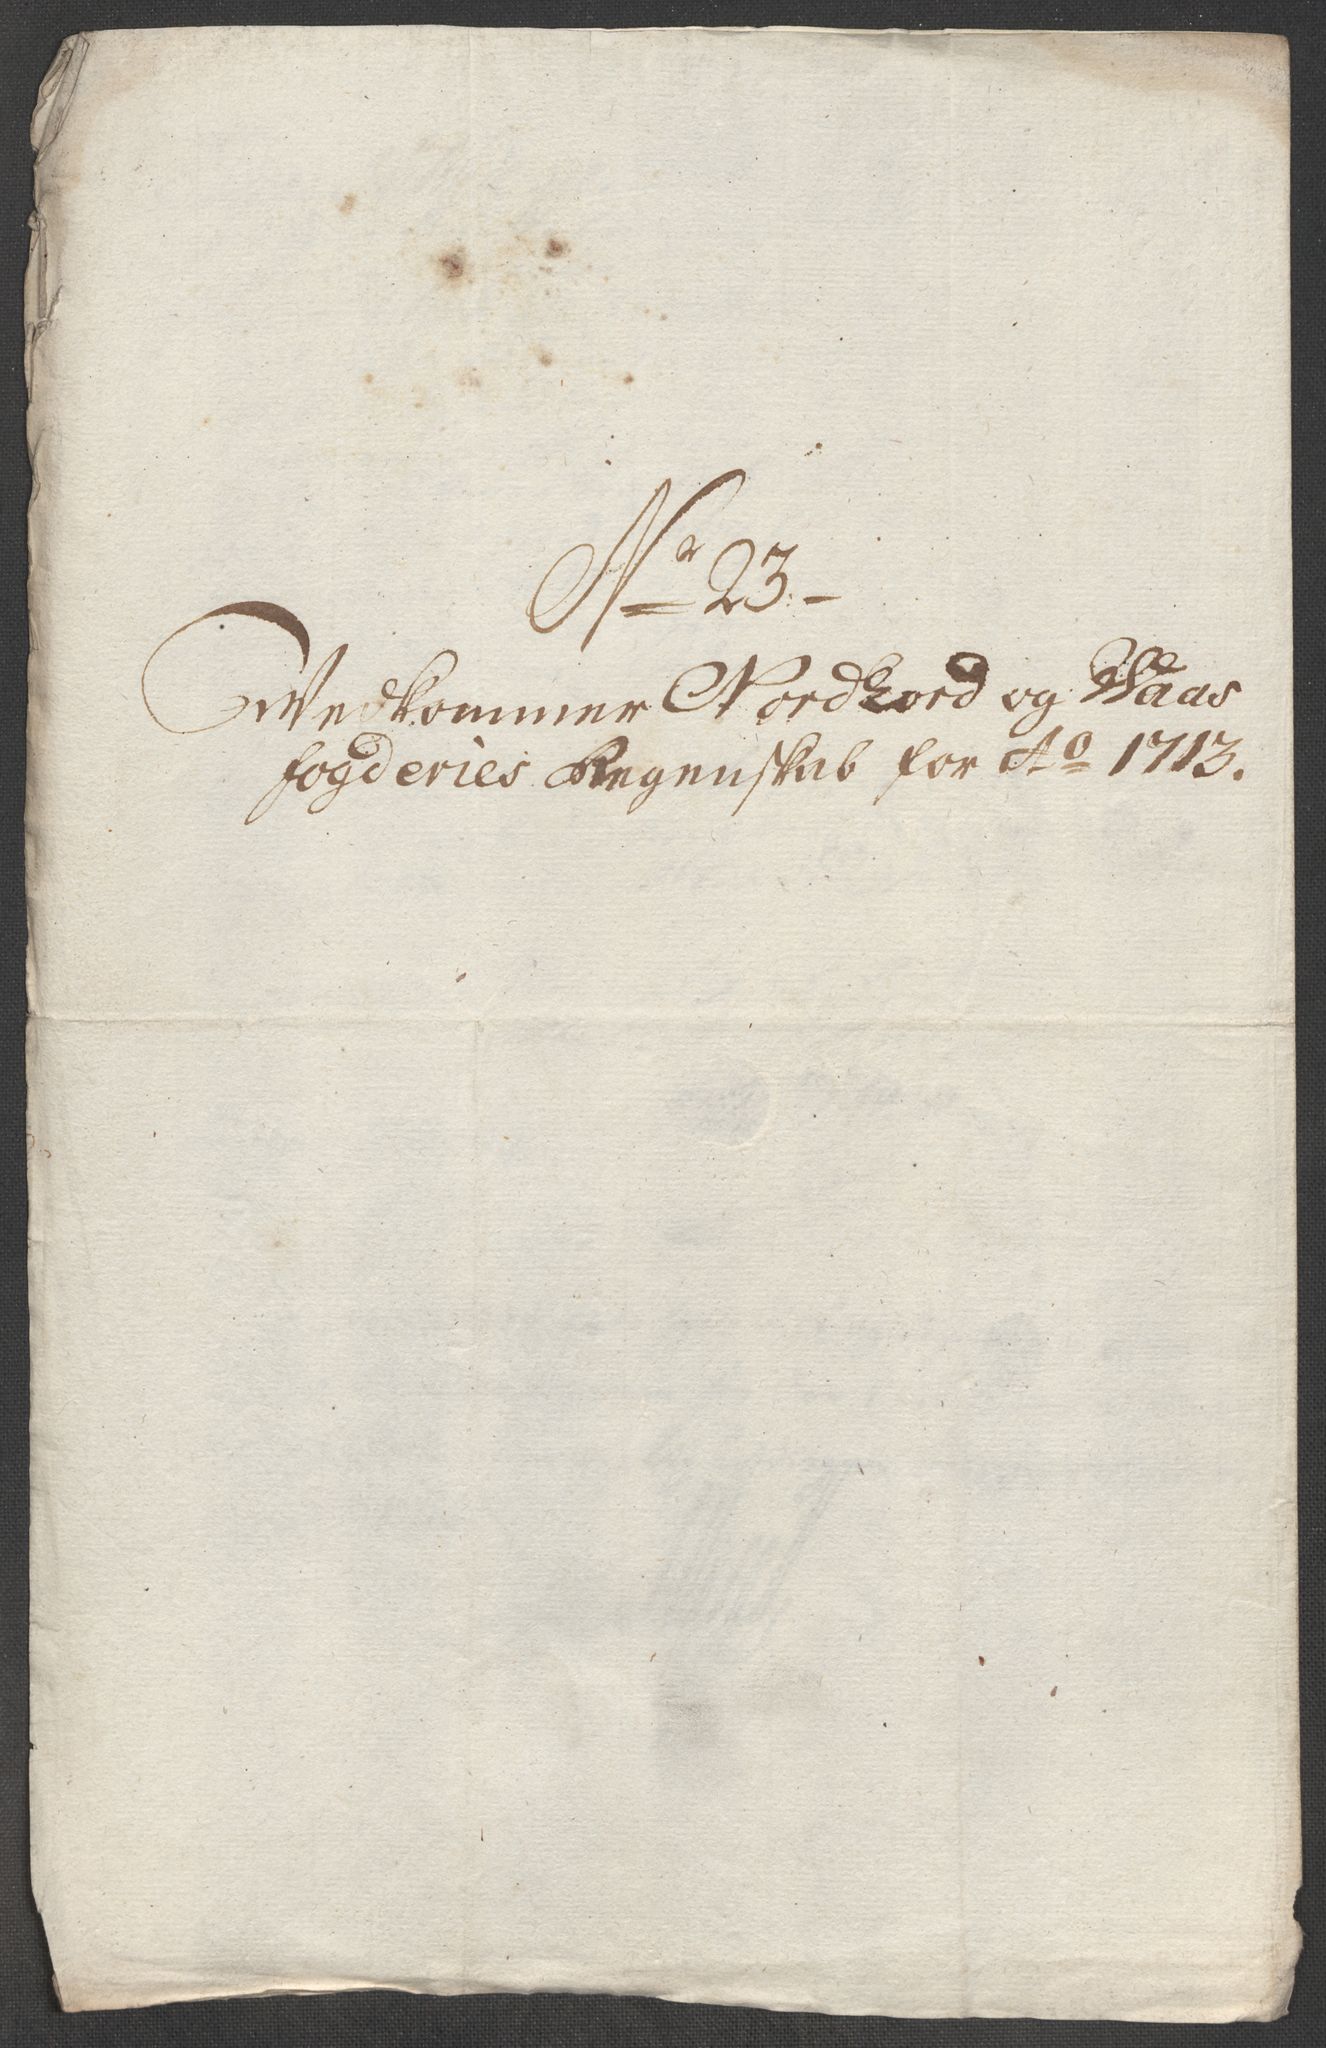 No 23.-
Vedkommer Nordhord og Waas
fogderies Regenskab for Ao 1713.